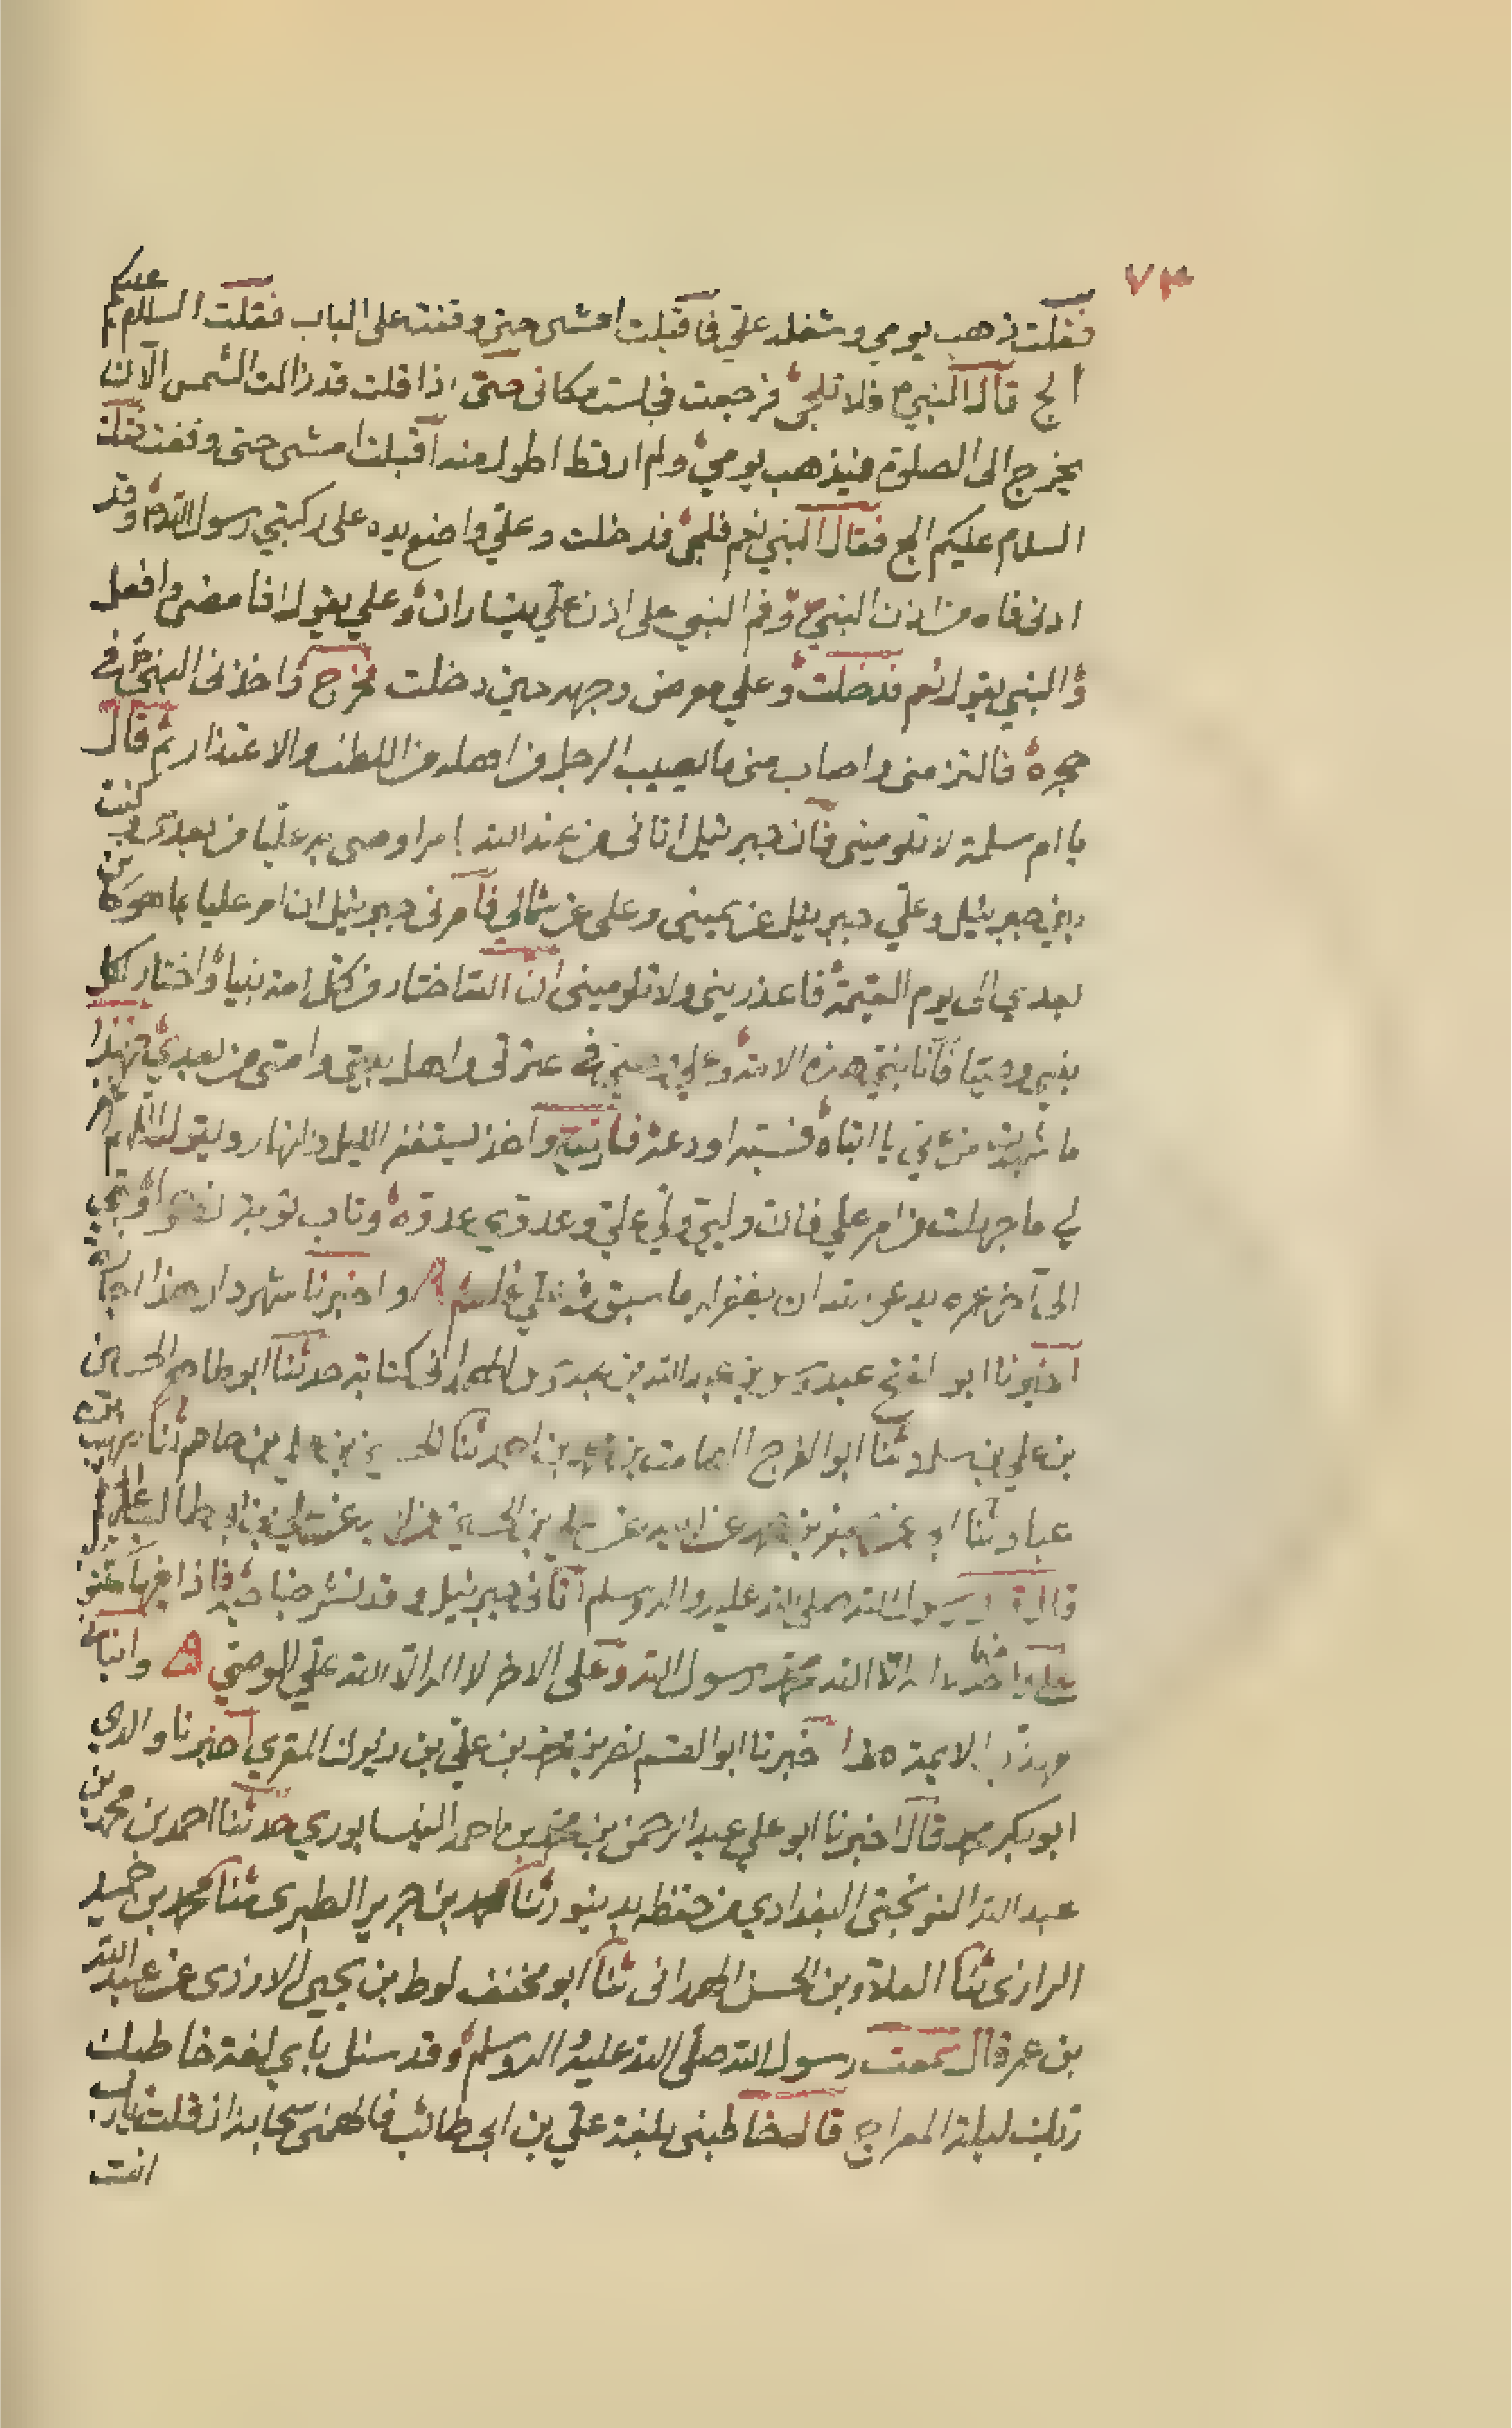 ٧٣
فقلت ذهب يومي وشغله علي فاقبلت امشي حتى وقفت على الباب فقلت السلام عليكم
الج قال النبي ص فلا تلجي فرجعت فجلست مكاني حتى اذا قلت قد زالت الشمس الآن
يخرج الى الصلوة فيذهب يومي ولم ار قط اطول منه اقبلت امشي حتى وقفت فقلت
السلام عليكم الج فقال النبي نعم فلجي فدخلت وعلي واضع يده على ركبتي رسول الله ص وقد
ادنى فاه من اذن النبي وفم النبي على اذن علي يتساران وعلي يقول افامضى وافعل
والنبي يقول نعم فدخلت وعلي معرض وجهه حين دخلت فخرج واخذني النبي ص في
حجره فالتزمني واصاب مني ما يصيب الرجل من اهله من اللطف والاعتذار ثم قال
يا ام سلمة لا تلوميني فان جبرئيل اتاني من عند الله امر اوصي به عليا من بعدي وكنت
بين جبرئيل وعلي جبرئيل عن يميني وعلي عن شمالي فامرني جبرئيل ان امر عليا بما هو كائن
بعدي الى يوم القيمة فاعذريني ولا تلوميني ان الله اختار من كل امة نبيا واختار لكل
نبي وصيا فانا نبي هذه الامة وعلي وصيي في عترتي واهل بيتي وامتي من بعدي فهذا
ما شهدت من علي يا ابتاه فسبه او دعه فا واخذ يستغفر الليل والنهار ويقول اللهم اغفر
لي ما جهلت من امر علي فان وليي ولي علي وعدوي عدوه وتاب توبة نصوحا وبقي
الى آخر عمره يدعو الله ان يغفر له ما سبق واخبرنا شهردار هذا اجازة
اخبرنا ابو الفتح عبدوس بن عبد الله بن عبدوس الهمداني كتابة حدثنا ابو طاهر الحسين
بن علي بن سلمة ثنا ابو الفرج الصامت بن محمد بن احمد ثنا الحسين بن علي بن عاصم ثنا صهيب بن
عباد ثنا ابي عن جعفر بن محمد عن ابيه عن علي بن الحسين عن ابيه عن علي بن ابي طالب عليه السلام
قال قال رسول الله صلى الله عليه واله وسلم اتاني جبرئيل وقد نشر جناحيه فاذا فيها مكتوب
على احدهما لا اله الا الله محمد رسول الله وعلى الاخر لا اله الا الله علي الوصي وانبأني
مهذب الائمة هذا اخبرنا ابو القسم نصر بن محمد بن علي بن زيرك المقري اخبرنا والدي
ابو بكر محمد قال اخبرنا ابو علي عبد الرحمن بن محمد بن احمد النيسابوري حدثنا احمد بن محمد بن
عبد الله النوبختي البغدادي من حفظه بدينور ثنا محمد بن جرير الطبري ثنا محمد بن حميد
الرازي ثنا العلاء بن الحسن الهمداني ثنا ابو مخنف لوط بن يحيى الازدي عن عبد الله
بن عمر قال سمعت رسول الله صلى الله عليه واله وسلم وقد سئل باي لغة خاطبك
ربك ليلة المعراج قال خاطبني بلغة علي بن ابي طالب فالهمني سبحانه ان قلت يا رب
انت